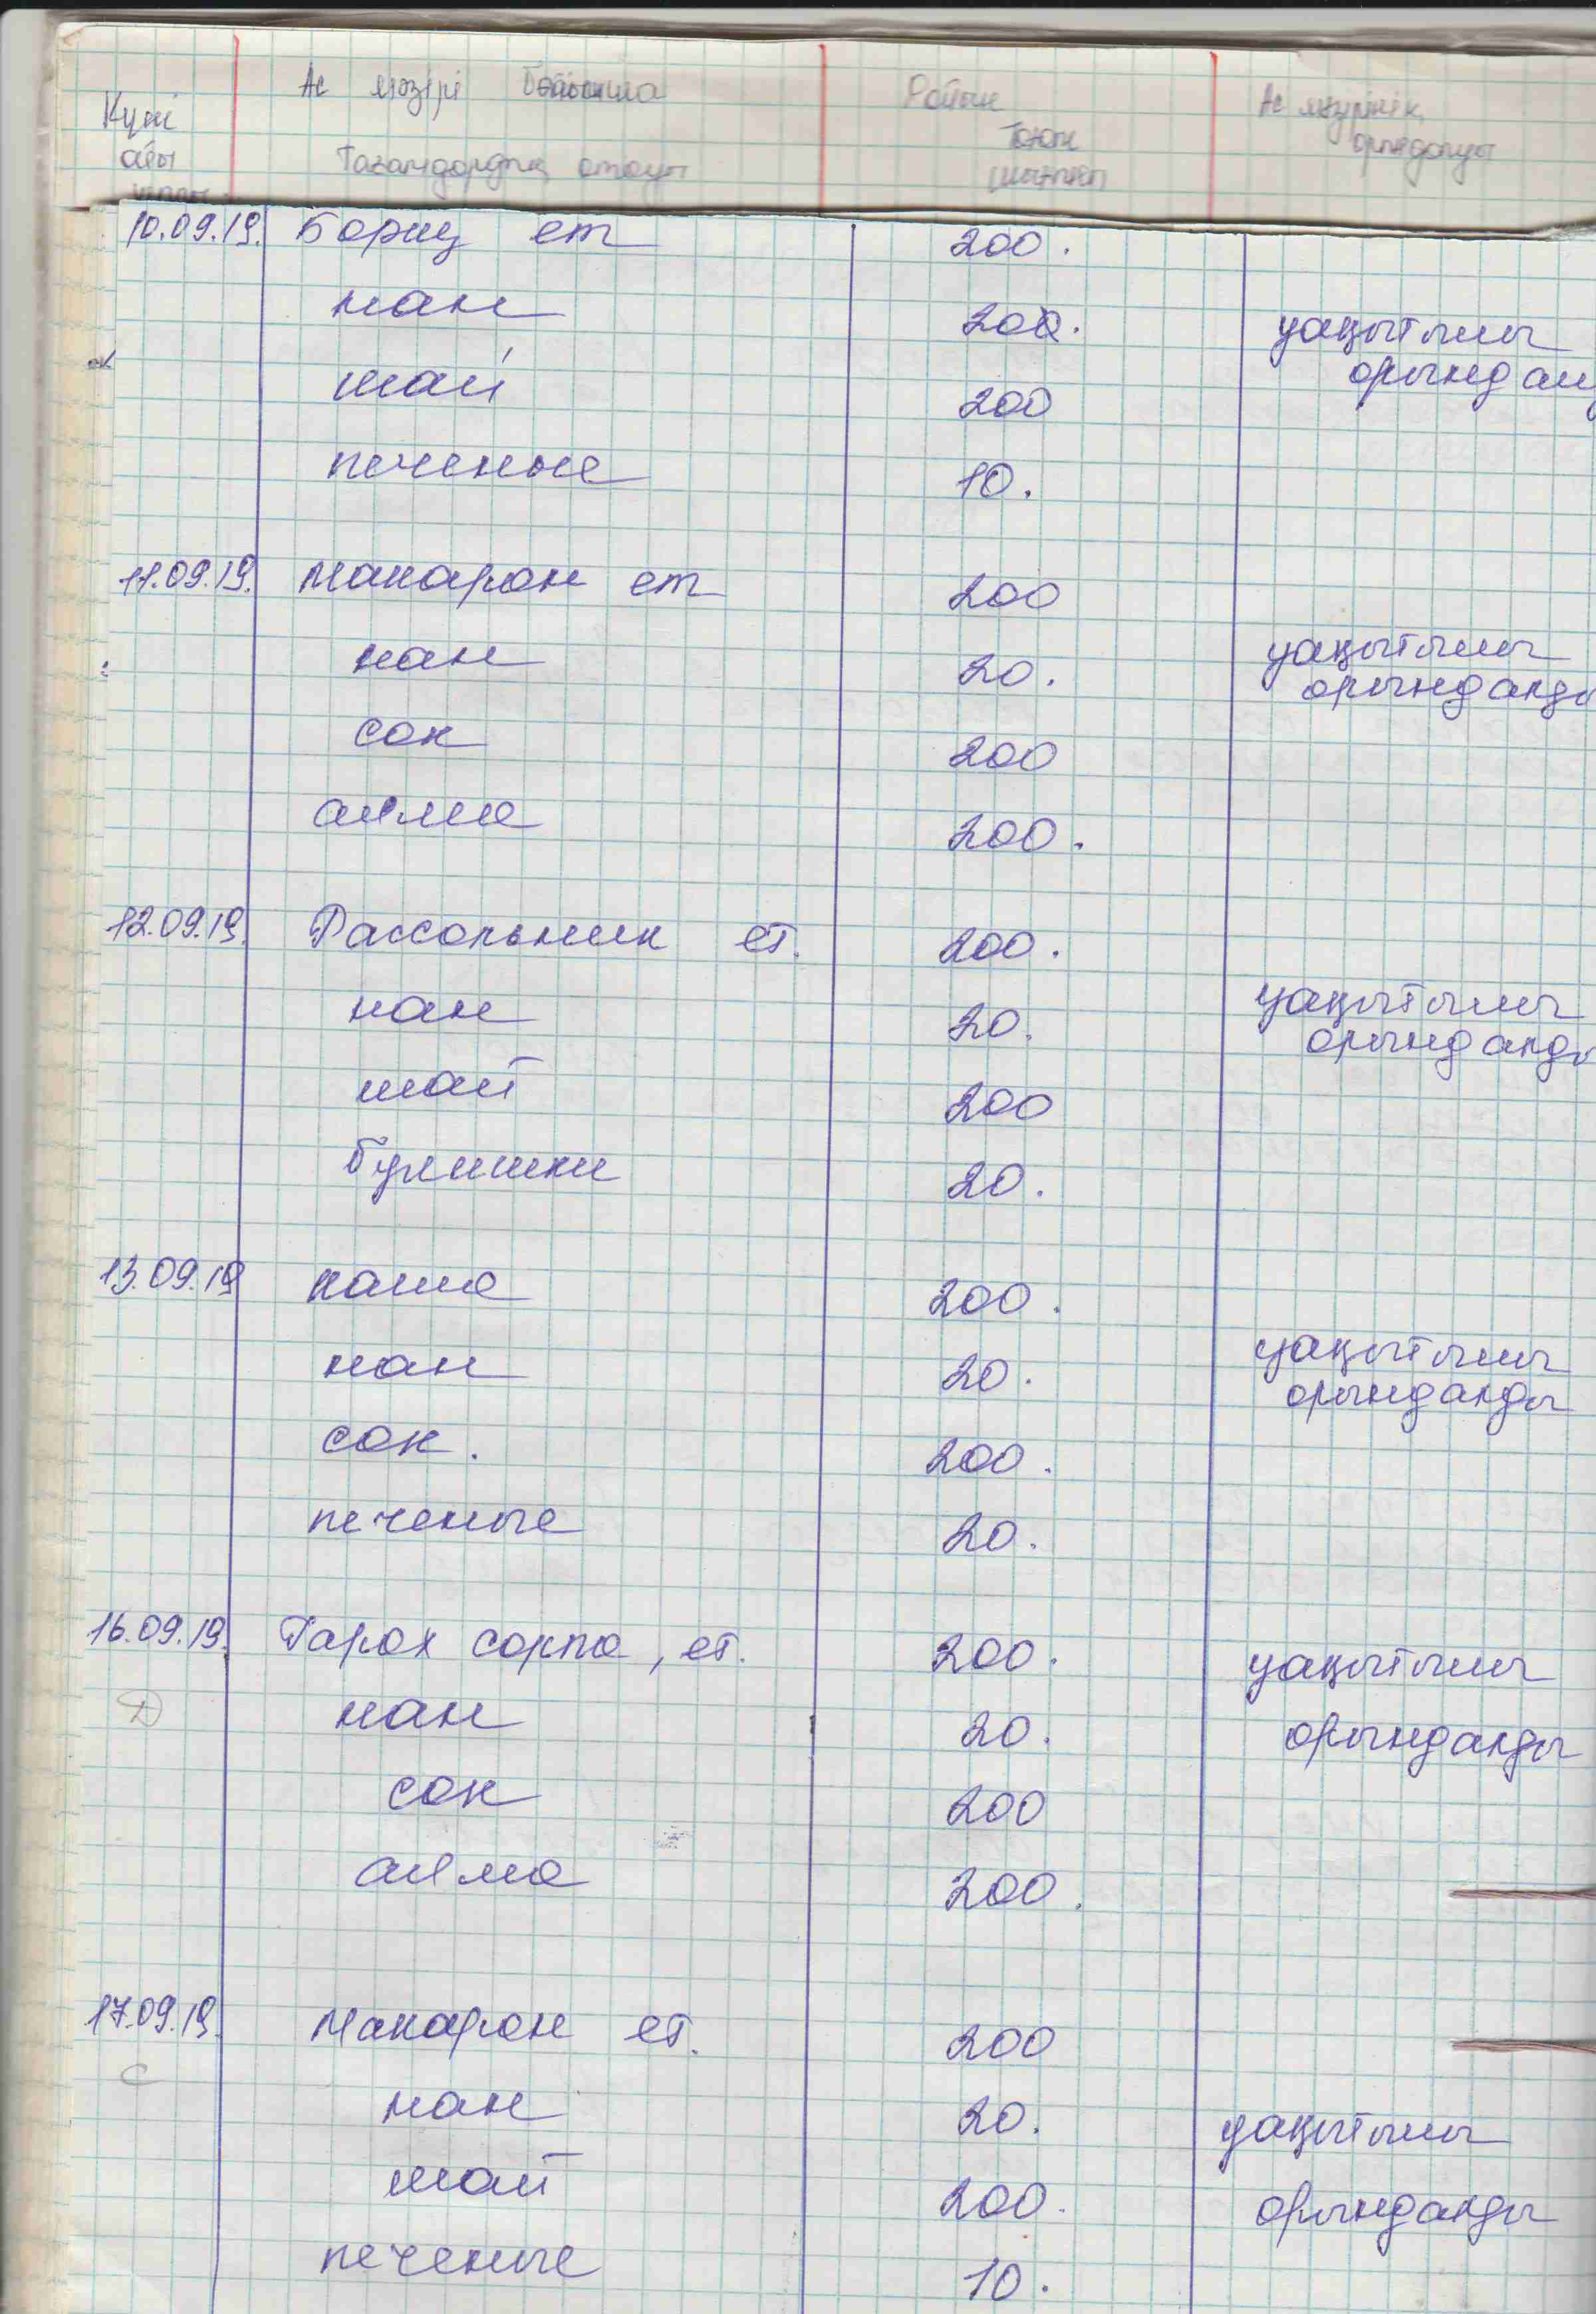 Күні Ас мәзірі Бойынша Ас мәзірінің
айы Тағамдардың аталуы орындалуы
10.09.19. Борщ ет 200.
нан 200. уақытылы
шай 200 орындал
печенье 10.
11.09.19. Макарон ет 200
нан 20. уақытылы
сок 200 орындалды
алма 200.
12.09.19. Рассольник ет. 200.
нан 20. уақытылы
шай 200 орындалды
булишки 20.
13.09.19 каша 200.
нан 20. уақытылы
сок. 200. орындалды
печенье 20.
16.09.19. Гарох сорпа, ет. 200. уақытылы
Д нан 20. орындалды
сок 200
алма 200.
17.09.19. Макарон ет. 200
С нан 20. уақытылы
шай 200. орындалды
печенье 10.